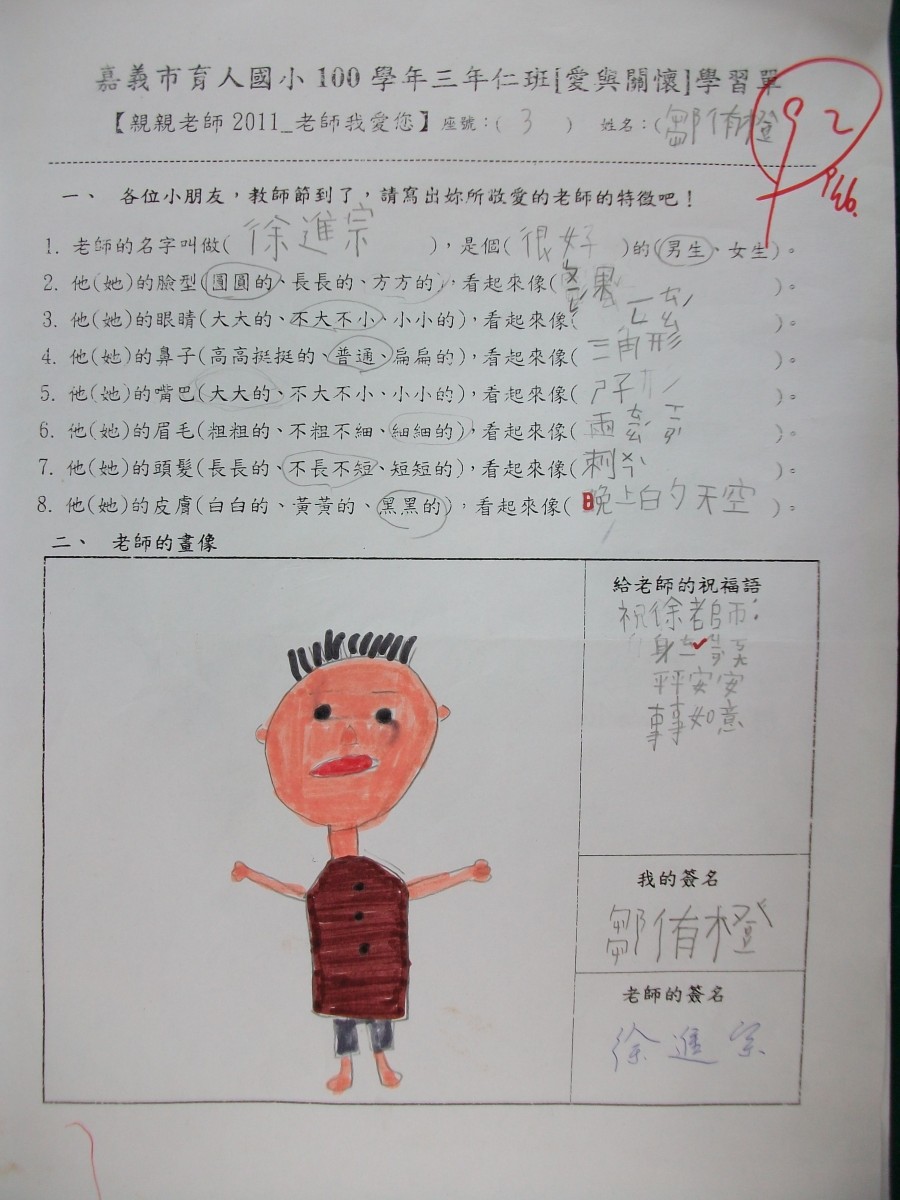 嘉義市育人國小 100 學年三年仁班[愛與關懷]學習單
【親親老師 2011_老師我愛您】座號：( 3 ) 姓名：(鄒侑橙
92
9/26.
一、 各位小朋友，教師節到了，請寫出妳所敬愛的老師的特徵吧！
1. 老師的名字叫做( 徐進宗 )，是個( 很好 )的(男生、女生)。
2. 他(她)的臉型(圓圓的、長長的、方方的)，看起來像( 果 )。
3. 他(她)的眼睛(大大的、不大不小、小小的)，看起來像( )。
4. 他(她)的鼻子(高高挺挺的、普通、扁扁的)，看起來像( 三角形 )。
5. 他(她)的嘴巴(大大的、不大不小、小小的)，看起來像( )。
6. 他(她)的眉毛(粗粗的、不粗不細、細細的)，看起來像( 兩ㄊㄠˊ )。
7. 他(她)的頭髮(長長的、不長不短、短短的)，看起來像( 刺 )。
8. 他(她)的皮膚(白白的、黃黃的、黑黑的)，看起來像( 晚上白夕天空 )。
二、 老師的畫像
給老師的祝福語
祝徐老師：
身
平平安安
事事如意
我的簽名
鄒侑橙
老師的簽名
徐進宗